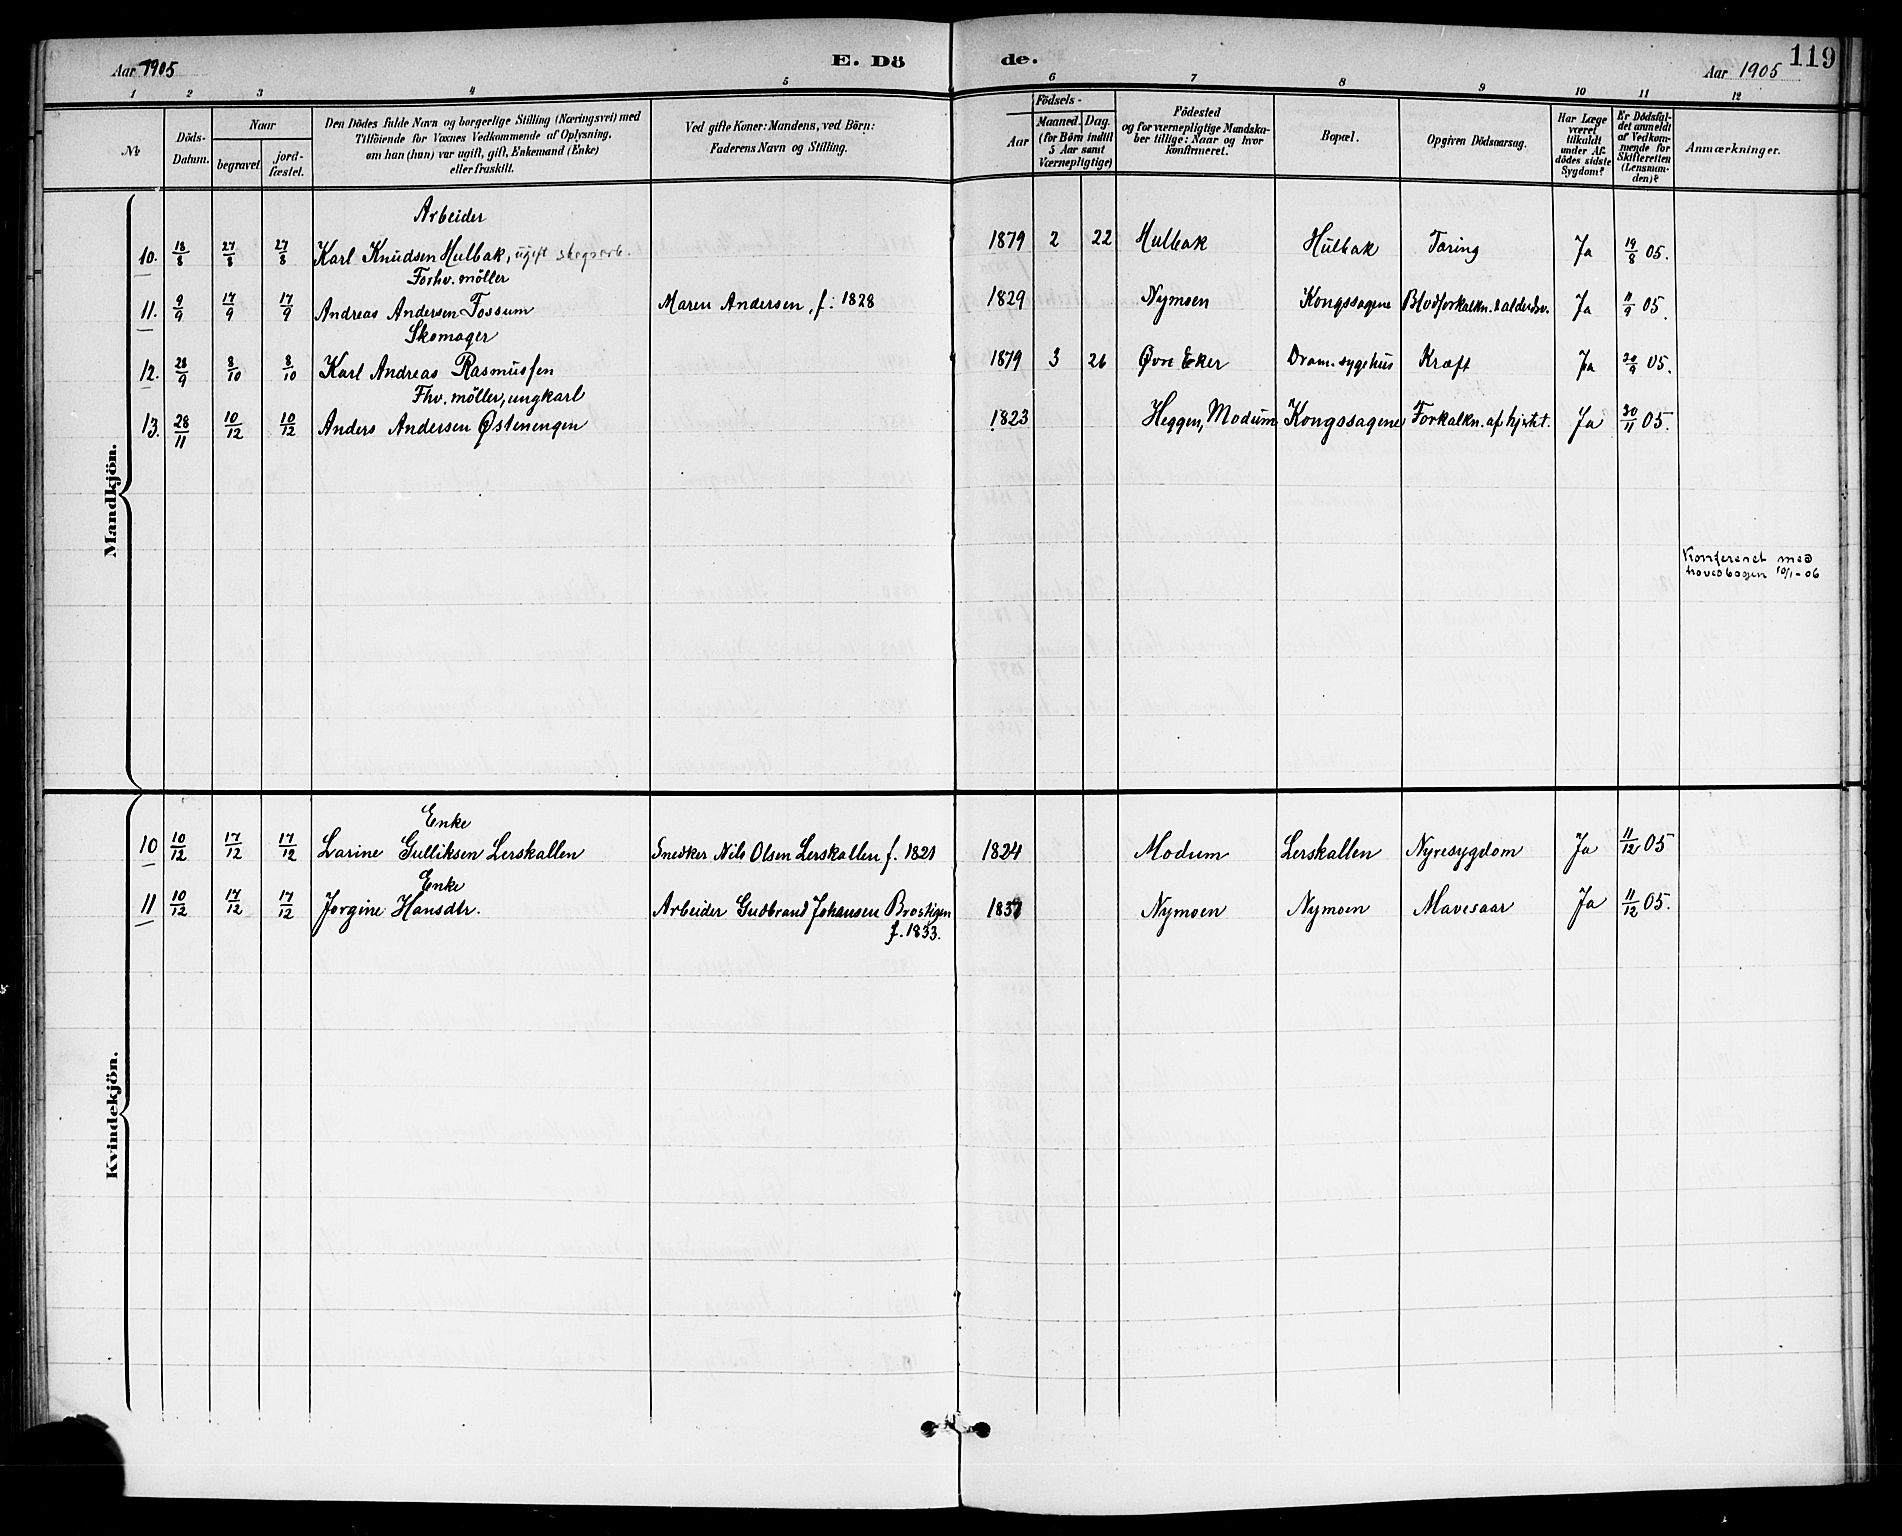 Aar 1905 E. Dö de. Aar 1905 119
1 2 3 4 5 6 7 8 9 10 11 12
№
Döds-Datum.
Naar
begravet.
jord-fæstet.
Den Dödes fulde Navn og borgerlige Stilling (Næringsvei) med
Tilföiende for Voxnes Vedkommende af Oplysning,
om han (hun) var ugift, gift, Enkemand (Enke)
eller fraskilt.
Ved gifte Koner: Mandens, ved Börn:
Faderens Navn og Stilling.
Födsels-
Aar
Maaned. Dag.
(for Börn indtil
5 Aar samt
Værnepligtige)
Födested
og for værnepligtige Mandska-
ber tillige: Naar og hvor
konfirmeret.
Bopæl.
Opgiven Dödsaarsag.
Har Læge
været
tilkaldt
under Af-
dödes sidste
Sygdom?
Er Dödsfal-
det anmeldt
af Vedkom-
mende for
Skifteretten
(Lensman-
den)?
Anmærkninger.
Mandkjön.
Arbeider
10. 18/8 27/8 27/8 Karl Knudsen Hulbak, ugift skogsarb. 1879 2 22 Hulbak Hulbak Tæring Ja 19/8 05.
Forhv. möller
11. 9/9 17/9 17/9 Andreas Andersen Fossum Maren Andersen, f: 1828 1829 Nymoen Kongssagene Blodforkalkn. & alderdsv. Ja 11/9 05.
Skomager
12. 28/9 8/10 8/10 Karl Andreas Rasmussen 1879 3 26 Øvre Eker Dram. sygehus Kræft Ja 30/9 05.
Fhv. möller, ungkarl
13. 28/11 10/12 10/12 Anders Andersen Østenengen 1823 Heggen, Modum Kongssagene Forkalkn. af hjertet. Ja 30/11 05.
Konfereret med
hovedbogen 10/1-06
Kvindekjön.
Enke
10 10/12 17/12 17/12 Larine Gulliksen Lerskallen Snedker Nils Olsen Lerskallen f. 1821 1824 Modum Lerskallen Nyresygdom Ja 11/12 05
Enke
11 10/12 17/12 17/12 Jorgine Hansdtr. Arbeider Gudbrand Johansen Brostigen 1837 Nymoen Nymoen Mavesaar Ja 11/12 05.
f. 1833.